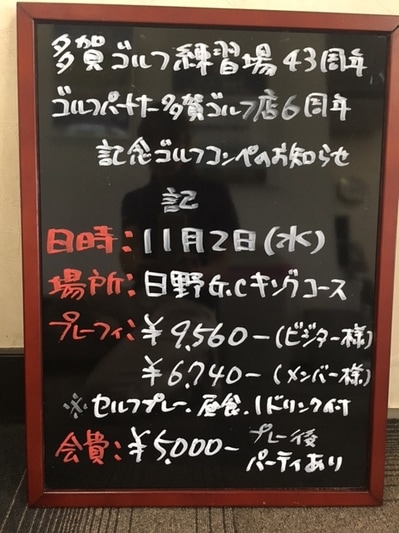 多賀ゴルフ練習場43周年
ゴルフパートナー多賀ゴルフ店6周年
記念ゴルフコンペのお知らせ
記
日時:11月2日(水)
場所:日野G.Cキングコース
プレーフィ:¥9,560-(ビジター様)
¥6,740-(メンバー様)
※セルフプレー.昼食.1ドリンク付
会費:¥5,000- プレー後
パーティあり